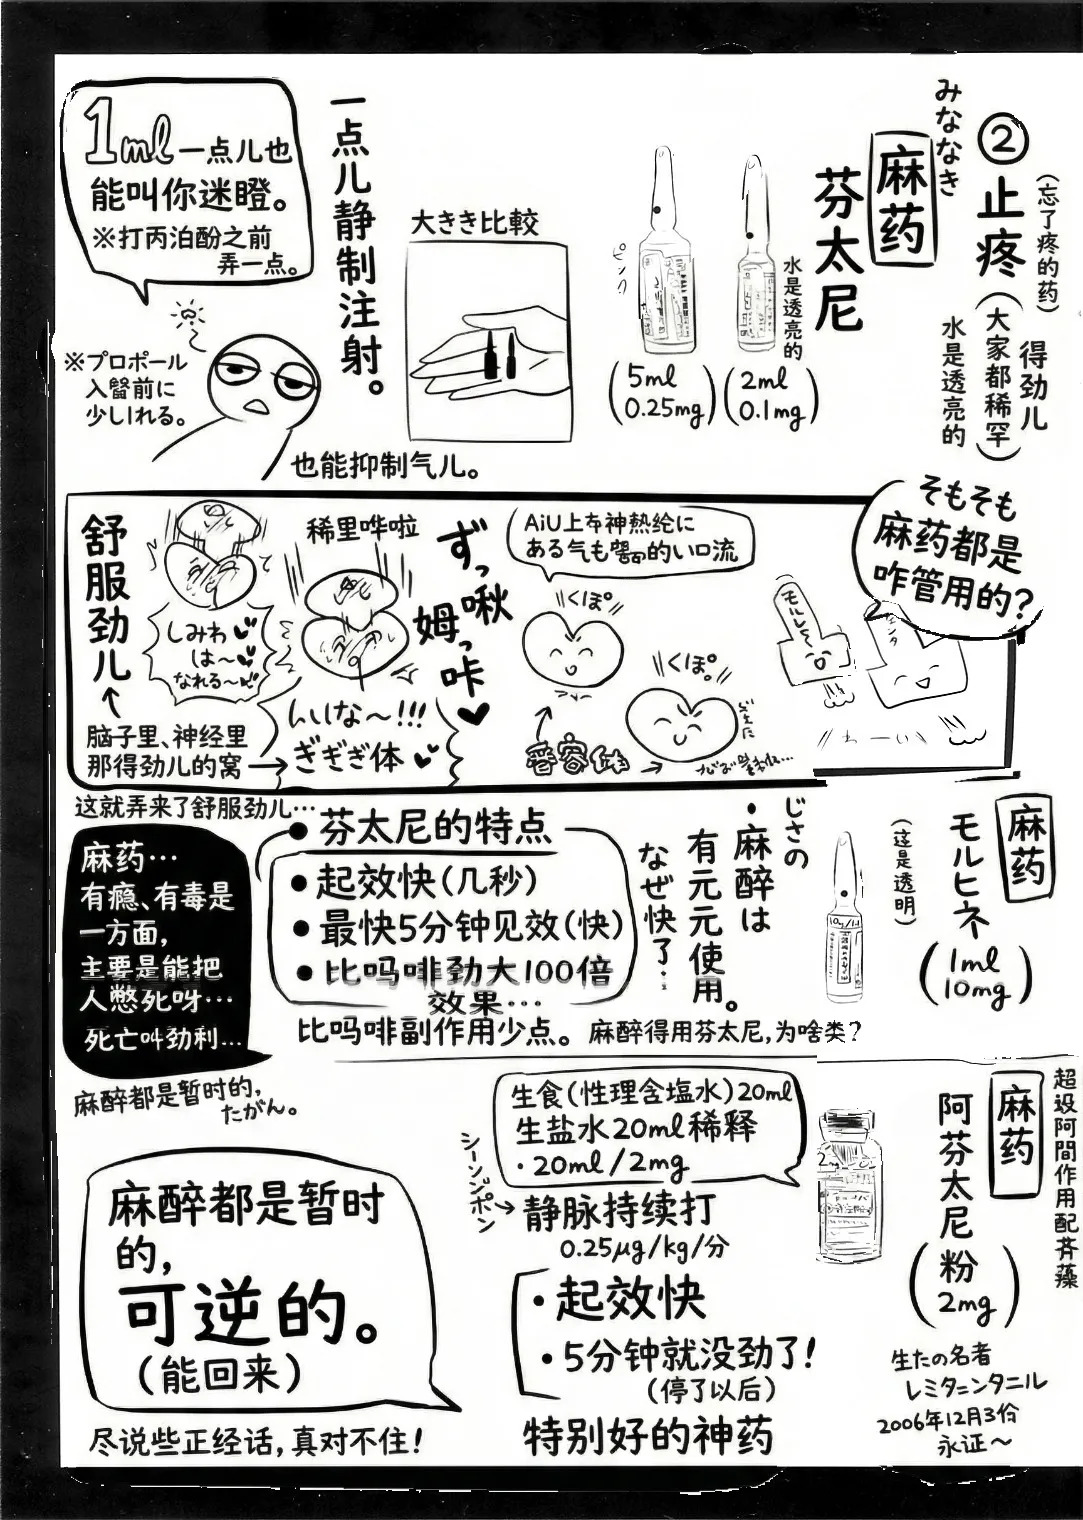 ②止疼
(忘了疼的药)
得劲儿
(大家都稀罕)
水是透亮的
みななき
麻药
芬太尼
水是透亮的
ピンク
(5ml
0.25mg)
(2ml
0.1mg)
大きき比較
一点儿静制注射。
1ml一点儿也
能叫你迷瞪。
※打丙泊酚之前
弄一点。
※プロポール
入督前に
少しれる。
也能抑制气儿。
そもそも
麻药都是
咋管用的?
モルし〜
わーい
AiU上存神熱纶に
ある气も的い口流
くぽ
くぽ。
ずっ啾
姆っ咔♥
稀里哗啦
んいな〜!!!
ぎぎぎ体
舒服劲儿
しみわ
は〜
なれる〜
脑子里、神经里
那得劲儿的窝→
这就弄来了舒服劲儿…
麻药
モルヒネ
(1ml
10mg)
(这是透明)
じさの
・麻醉は
有元元使用。
なぜ快了…
芬太尼的特点
●起效快(几秒)
●最快5分钟见效(快)
●比吗啡劲大100倍
效果…
比吗啡副作用少点。
麻醉得用芬太尼,为啥类?
麻药…
有瘾、有毒是
一方面,
主要是能把
人憋死呀…
死亡叫劲利…
麻醉都是暂时的,
たがん。
超设阿間作用配荠藻
麻药
阿芬太尼
(粉
2mg)
生たの名者
レミタニンタニル
2006年12月3份
永证〜
生食(性理含塩水)20ml
生盐水20ml稀释
・20ml/2mg
シーンョポン
静脉持续打
0.25μg/kg/分
・起效快
・5分钟就没劲了!
(停了以后)
特别好的神药
麻醉都是暂时
的,
可逆的。
(能回来)
尽说些正经话,真对不住!